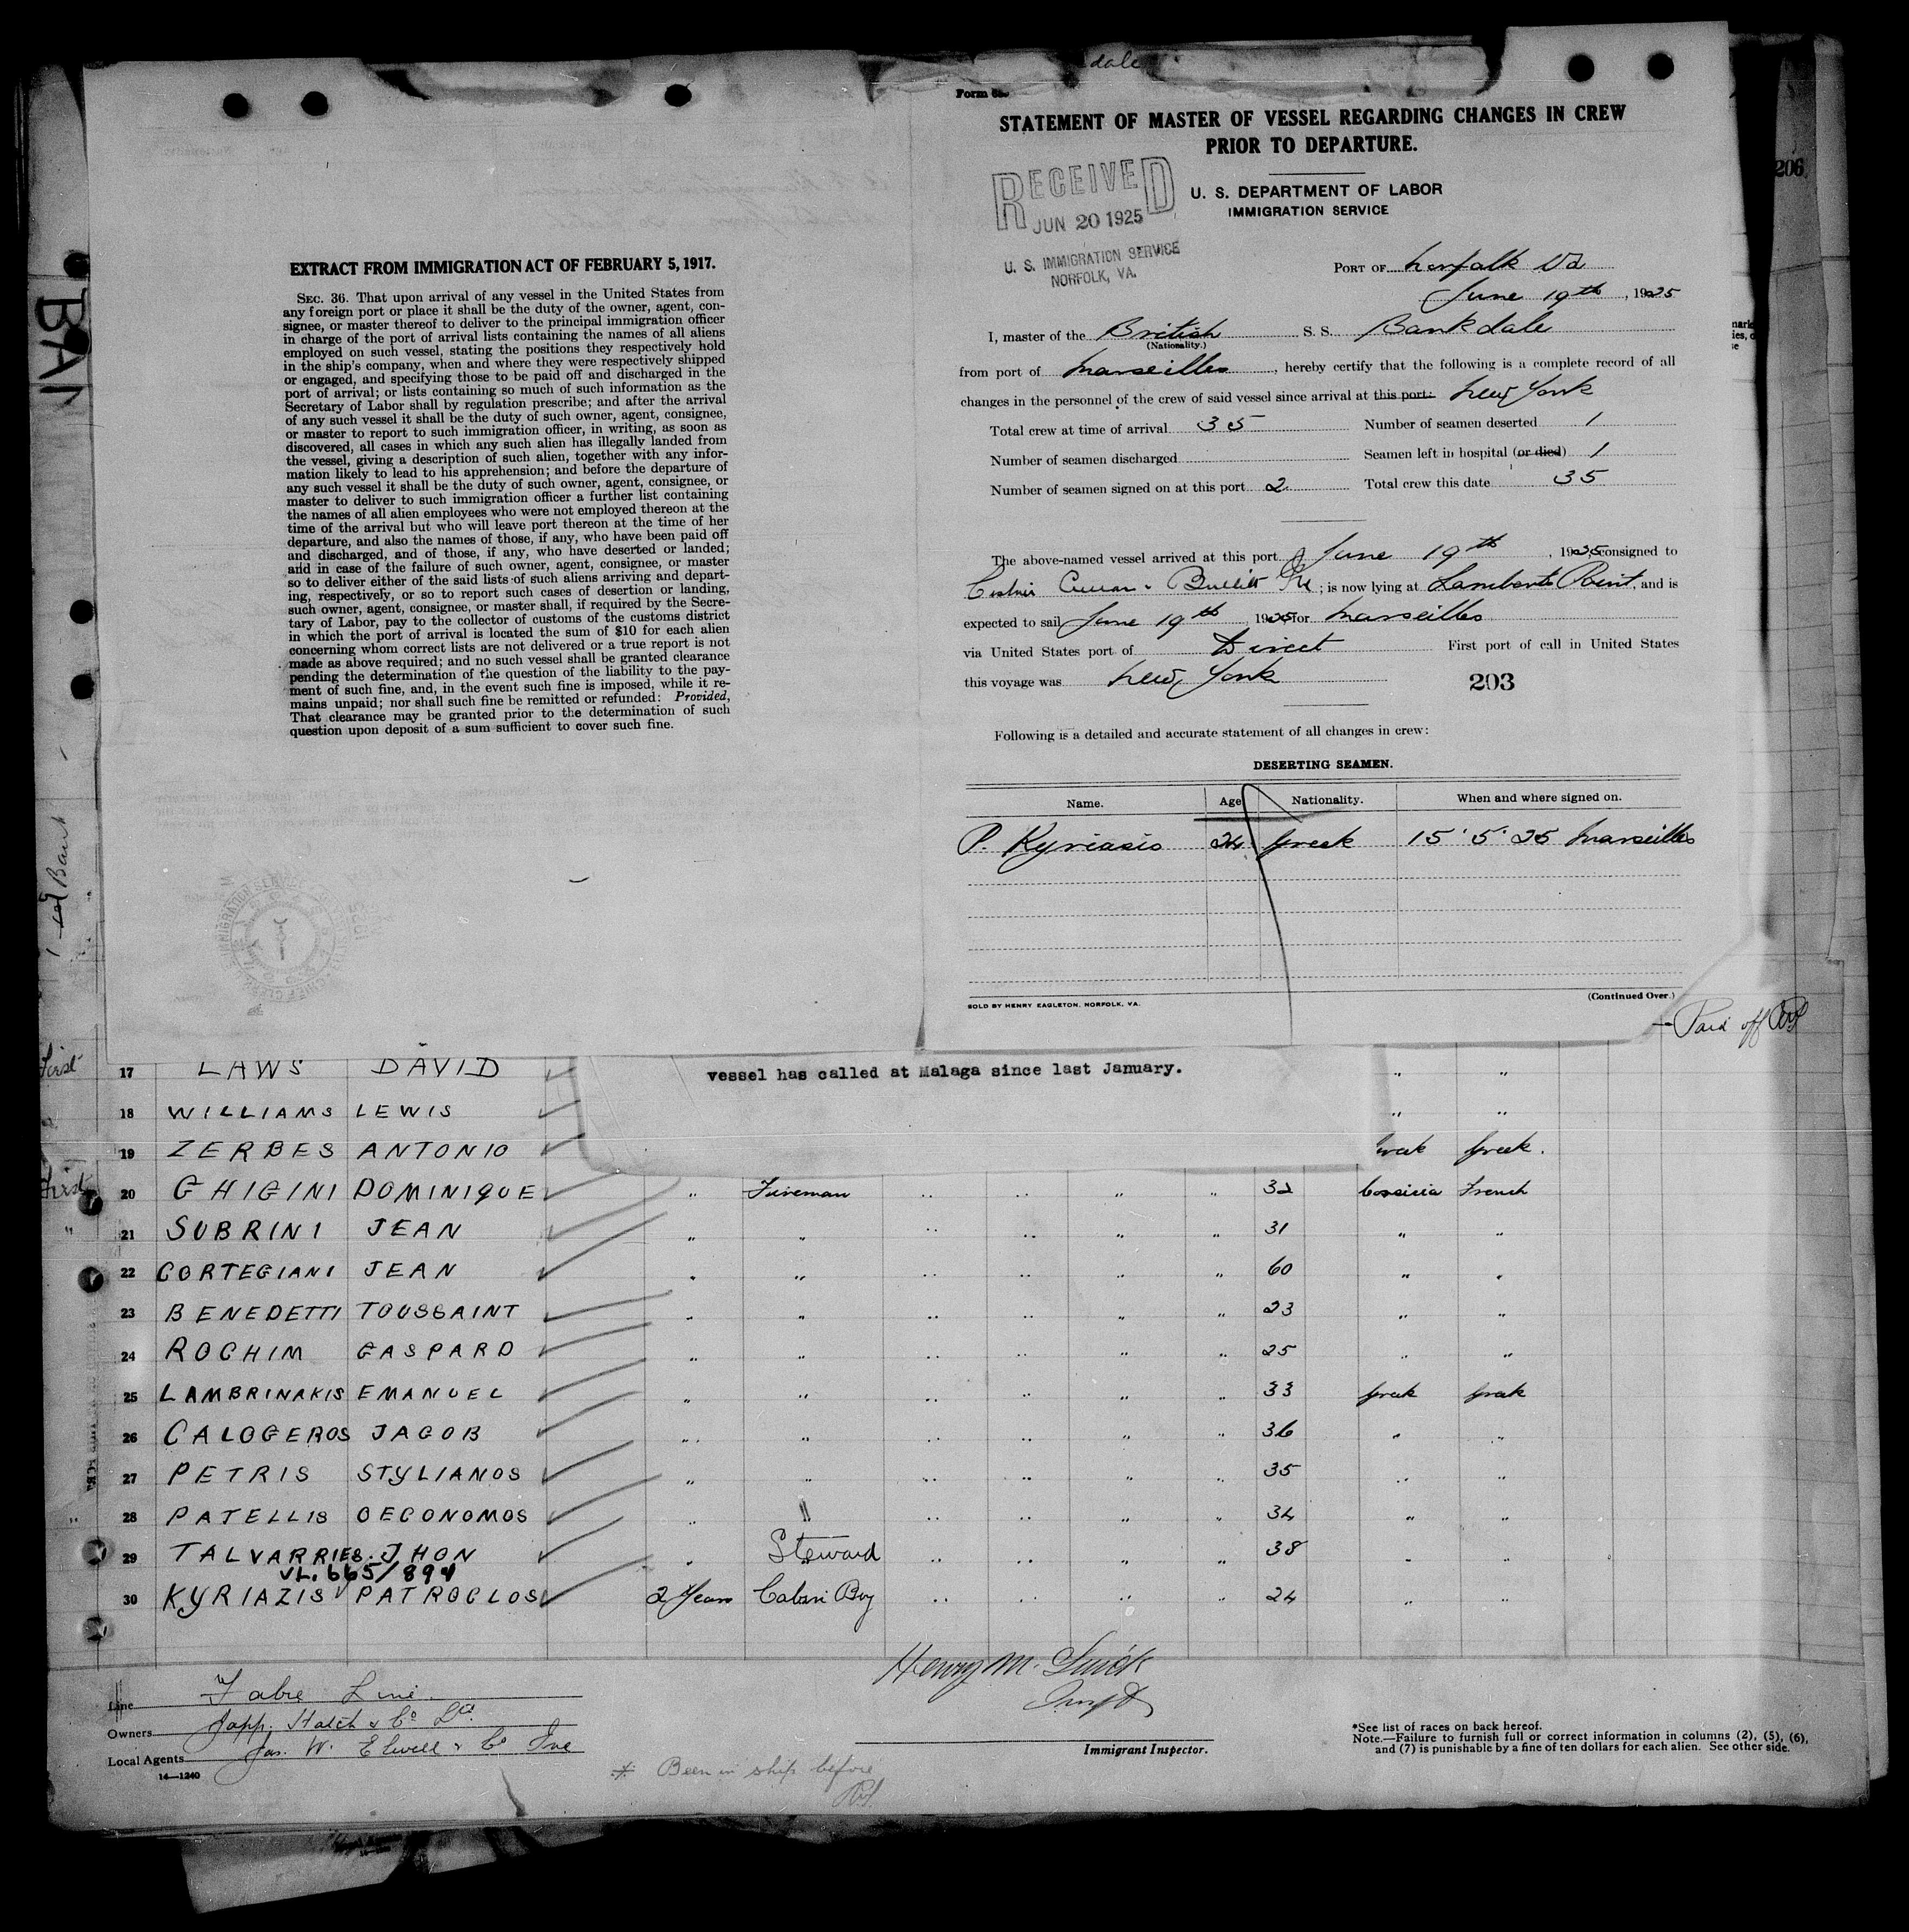 dale
EXTRACT FROM IMMIGRATION ACT OF FEBRUARY 5, 1917.
SEC. 36. That upon arrival of any vessel in the United States from
any foreign port or place it shall be the duty of the owner, agent, con-
signee, or master thereof to deliver to the principal immigration officer
in charge of the port of arrival lists containing the names of all aliens
employed on such vessel, stating the positions they respectively hold
in the ship's company, when and where they were respectively shipped
or engaged, and specifying those to be paid off and discharged in the
port of arrival; or lists containing so much of such information as the
Secretary of Labor shall by regulation prescribe; and after the arrival
of any such vessel it shall be the duty of such owner, agent, consignee,
or master to report to such immigration officer, in writing, as soon as
discovered, all cases in which any such alien has illegally landed from
the vessel, giving a description of such alien, together with any infor-
mation likely to lead to his apprehension; and before the departure of
any such vessel it shall be the duty of such owner, agent, consignee, or
master to deliver to such immigration officer a further list containing
the names of all alien employees who were not employed thereon at the
time of the arrival but who will leave port thereon at the time of her
departure, and also the names of those, if any, who have been paid off
and discharged, and of those, if any, who have deserted or landed;
and in case of the failure of such owner, agent, consignee, or master
so to deliver either of the said lists of such aliens arriving and depart-
ing, respectively, or so to report such cases of desertion or landing,
such owner, agent, consignee, or master shall, if required by the Secre-
tary of Labor, pay to the collector of customs of the customs district
in which the port of arrival is located the sum of $10 for each alien
concerning whom correct lists are not delivered or a true report is not
made as above required; and no such vessel shall be granted clearance
pending the determination of the question of the liability to the pay-
ment of such fine, and, in the event such fine is imposed, while it re-
mains unpaid; nor shall such fine be remitted or refunded: Provided,
That clearance may be granted prior to the determination of such
question upon deposit of a sum sufficient to cover such fine.
Form
STATEMENT OF MASTER OF VESSEL REGARDING CHANGES IN CREW
PRIOR TO DEPARTURE.
RECEIVED
JUN 20 1925
U. S. IMMIGRATION SERVICE
NORFOLK, VA.
U. S. DEPARTMENT OF LABOR
IMMIGRATION SERVICE
PORT OF Norfolk Va
June 19th, 1925
I, master of the British S. S. Bankdale
(Nationality.)
from port of Marseilles, hereby certify that the following is a complete record of all
changes in the personnel of the crew of said vessel since arrival at this port: New York
Total crew at time of arrival 35 Number of seamen deserted 1
Number of seamen discharged Seamen left in hospital (or died) 1
Number of seamen signed on at this port 2 Total crew this date 35
The above-named vessel arrived at this port June 19th, 1925, consigned to
Curran & Bullitt; is now lying at Lamberts Point, and is
expected to sail June 19th, 1925 for Marseilles
via United States port of Direct First port of call in United States
this voyage was New York 203
Following is a detailed and accurate statement of all changes in crew:
DESERTING SEAMEN.
Name. Age Nationality. When and where signed on.
P. Kyriasis 24 Greek 15 . 5 . 25 Marseilles
SOLD BY HENRY EAGLETON, NORFOLK, VA. (Continued Over.)
206
BAN
Paid off
vessel has called at Malaga since last January.
First
17 LAWS DAVID " "
18 WILLIAMS LEWIS " "
19 ZERBES ANTONIO Greek Greek.
First
20 GHIGINI DOMINIQUE " Fireman " " " " 32 Corsicia French
21 SUBRINI JEAN " " " " " " 31 " "
22 CORTEGIANI JEAN " " " " " " 60 " "
23 BENEDETTI TOUSSAINT " " " " " " 23 " "
24 ROCHIM GASPARD " " " " " " 25 " "
25 LAMBRINAKIS EMANUEL " " " " " " 33 Greek Greek
26 CALOGEROS JACOB " " " " " " 36 " "
27 PETRIS STYLIANOS " " " " " " 35 " "
28 PATELLIS OECONOMOS " " " " " " 34 " "
29 TALVARRIES. JHON " Steward " " " " 38 " "
VL. 665/894
30 KYRIAZIS PATROCLOS 2 Years Cabin Boy " " " " 24 " "
Line Fabre Line
Owners Japp, Hatch & Co Ld.
Local Agents Jas. W. Elwell & Co Inc
14—1240
Henry M.
Immigrant Inspector.
* Been in ship before
*See list of races on back hereof.
Note.—Failure to furnish full or correct information in columns (2), (5), (6),
and (7) is punishable by a fine of ten dollars for each alien. See other side.